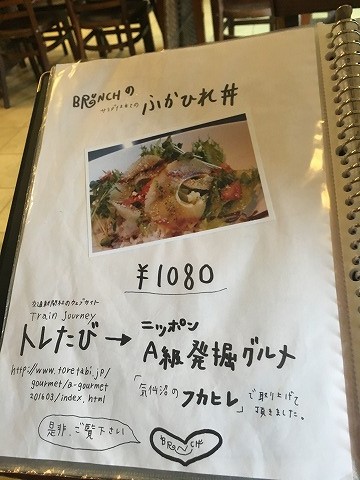 BRUNCHの
ふかひれ丼
¥1080
交通新聞社のウェブサイト
Train Journey
トレたび→
ニッポン
A級発掘グルメ
http://www.toretabi.jp/
gourmet/a-gourmet
201603/index.html
「気仙沼の
フカヒレ」で取り上げて
頂きました。
是非、ご覧下さい
BRUNCH